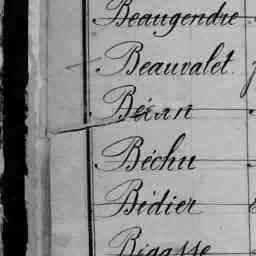 Beaugendre
Beauvalet.
Béchu
Bédier
Bigasse